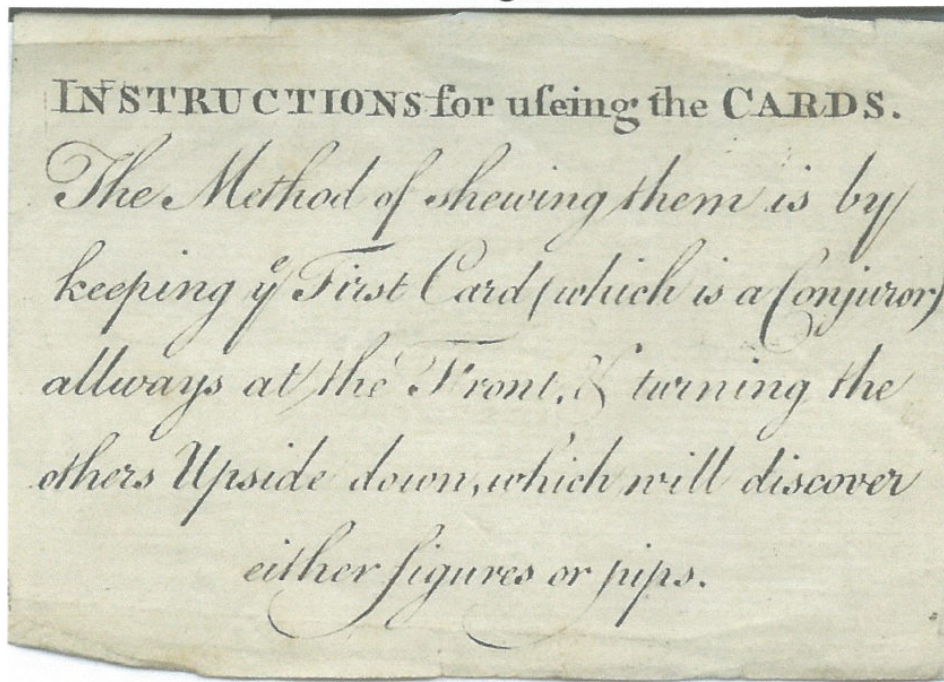 INSTRUCTIONS for uſeing the CARDS.
The Method of shewing them is by
keeping yͤ First Card (which is a Conjuror)
allways at the Front, & turning the
others Upside down, which will discover
either figures or pips.